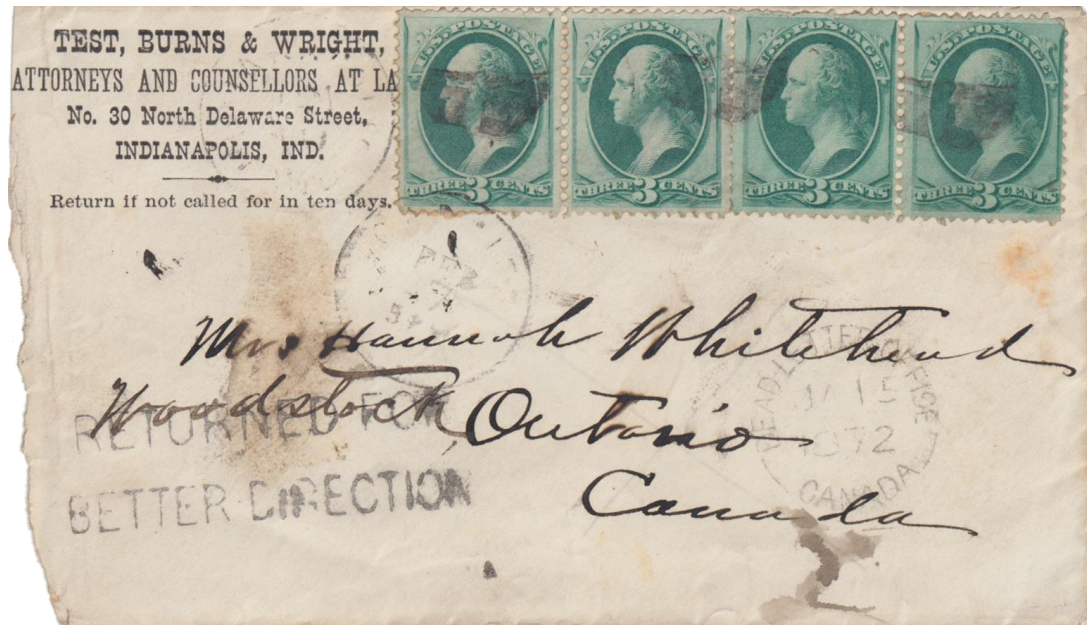 TEST, BURNS & WRIGHT,
ATTORNEYS AND COUNSELLORS AT LA
No. 30 North Delaware Street,
INDIANAPOLIS, IND.
Return if not called for in ten days.
U.S. POSTAGE
THREE 3 CENTS
U.S. POSTAGE
THREE 3 CENTS
U.S. POSTAGE
THREE 3 CENTS
U.S. POSTAGE
THREE 3 CENTS
FEB
Mrs Hannah Whitehead
Woodstock Ontario
Canada
RETURNED FOR
BETTER DIRECTION
DEAD LETTER OFFICE
JA 15
1872
CANADA